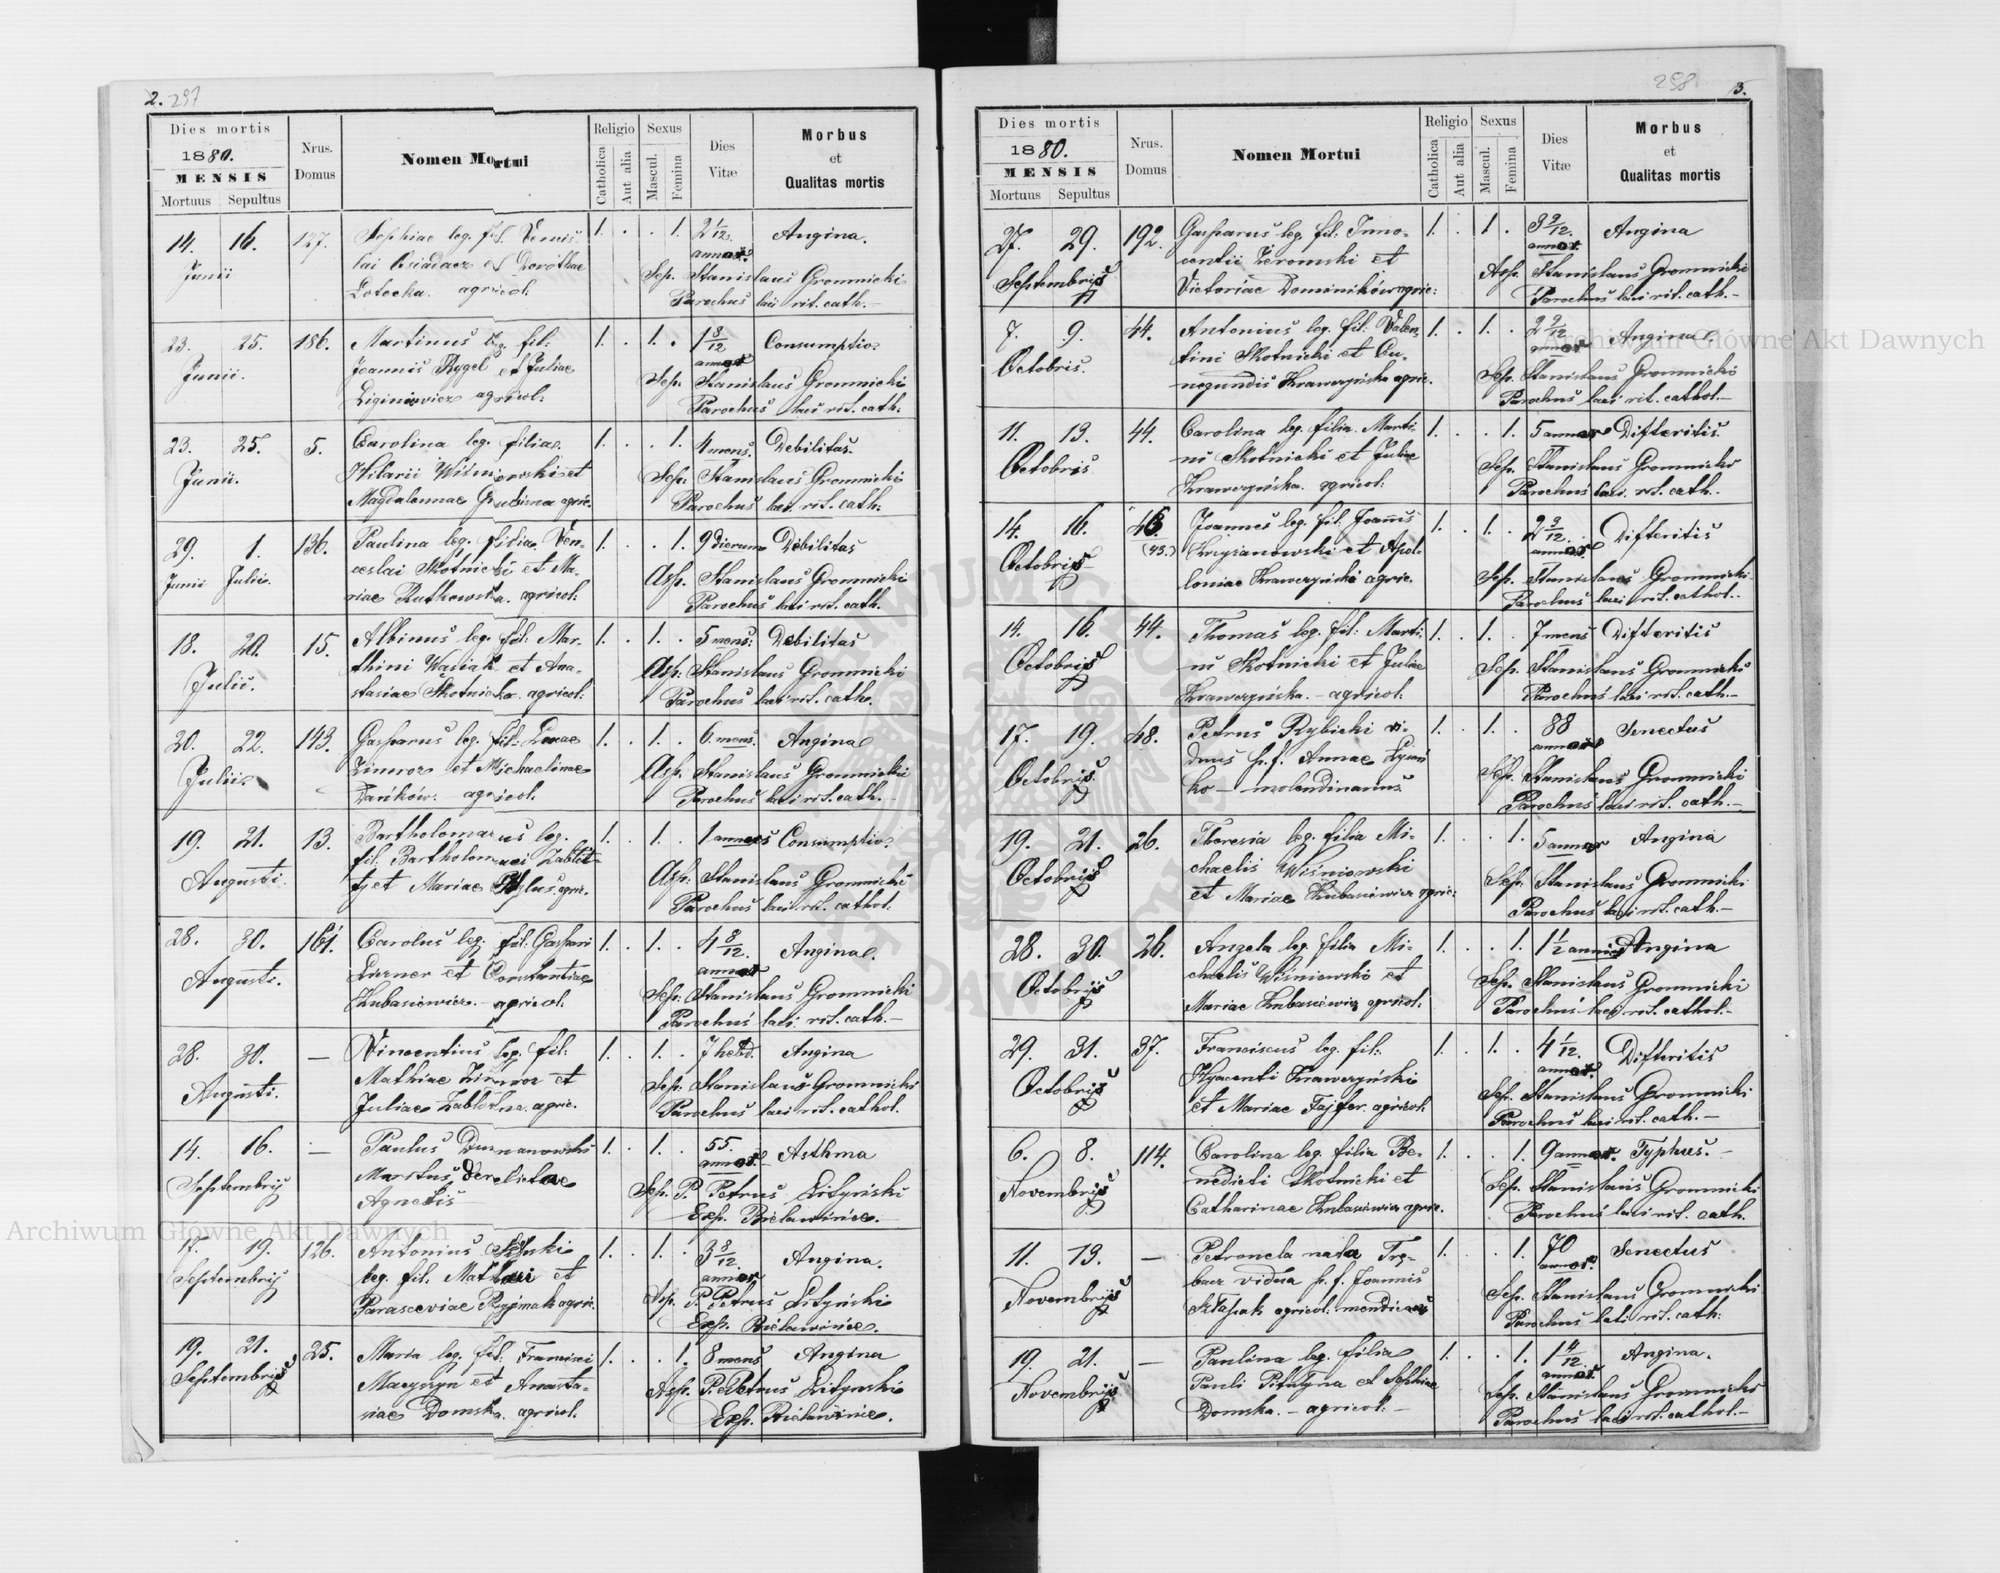 2. 297
Dies mortis
1880.
MENSIS
Mortuus Sepultus
Nrus.
Domus
Nomen Mortui
Religio
Catholica
Aut alia
Sexus
Mascul.
Femina
Dies
Vitæ
Morbus
et
Qualitas mortis
14. 16. 127. Sophiae leg. fil. 1. . . 1. 2 1/12 Angina.
Junii annor.
et Dorothae Sep. Stanislaus Gromnicki
agricol. Parochus lati rit. cath.
23. 25. 186. Martinus leg. fil: 1. . 1. . 1 8/12 Consumptio
Junii. Joannis Rygel et Juliae annor.
Sep. Stanislaus Gromnicki
Liginiewicz agricol: Parochus lati rit. cath.
23. 25. 5. Carolina leg. filia 1. . . 1. 4 mens. Debilitas
Junii. Hilarii Wiśniowski et Sep. Stanislaus Gromnicki
Magdalennae agric. Parochus lati. rit. cath.
29. 1. 136. Paulina leg. filia Ven- 1. . . 1. 9 dierum Debilitas
Junii Julii. ceslai Skotnicki et Ma- Asp. Stanislaus Gromnicki
riae Rutkowska. agricol: Parochus lati rit. cath.
18. 20. 15. Albinus leg. fil: Mar- 1. . 1. . 5 mens: Debilitas
Julii. thini Wąsiak et Ana- Asp: Stanislaus Gromnicki
stasiae Skotnicka. agricol: Parochus lati rit. cath.
20. 22. 143. Gasparus leg. fil: Lucae 1. . 1. . 6. mens. Angina
Julii. Zimroz et Michaelinae Asp. Stanislaus Gromnicki
Dańków. agricol. Parochus lati rit. cath.
19. 21. 13. Bartholomaeus leg. 1. . 1. . 1 annus Consumptio
fil. Bartholomaei
Augusti. et Mariae agric. Asp: Stanislaus Gromnicki
Parochus lati rit. cathol.
28. 30. 161. Carolus leg. fil: Gaspari 1. . 1. . 4 8/12. Angina.
Augusti. et Constantiae annor.
Kubasiewicz. agricol. Sep: Stanislaus Gromnicki
Parochus lati rit. cath.
28. 30. — Vincentius leg. fil: 1. . 1. . 7 hebd. Angina
Augusti. Mathiae Zimroz et Sep: Stanislaus Gromnicki
Juliae Zabłotna. agric. Parochus lati rit. cathol.
14. 16. — Paulus Dumanowski 1. . 1. . 55. Asthma
Septembris Maritus derelictae annor.
Agnetis Sep. P. Petrus Lityński
Exp. Bielawińce.
17. 19. 126. Antonius 1. . 1. . 3 8/12. Angina.
Septembris leg. fil. Mathaei et annor
Parasceviae Ryżmak agric. Asp. P. Petrus Lityński
Exp. Bielawińce.
19. 21. 25. Maria leg. fil: Francisci 1. . . 1. 8 mens Angina
Septembris et Anasta- Asp. P. Petrus Lityński
siae Domska. agricol. Exp. Bielawińce.
298 3.
Dies mortis
1880.
MENSIS
Mortuus Sepultus
Nrus.
Domus
Nomen Mortui
Religio
Catholica
Aut alia
Sexus
Mascul.
Femina
Dies
Vitæ
Morbus
et
Qualitas mortis
27. 29. 192. Gasparus leg. fil: Inno- 1. . 1. . 3 9/12. Angina
Septembris centii Żeromski et annor.
Victoriae Dominików agric: Asp. Stanislaus Gromnicki
Parochus lati rit. cath.
7. 9. 44. Antonius leg. fil: Valen- 1. . 1. . 2 2/12 Angina
Octobris. tini Skotnicki et Cu- annor
negundis Krawczyńska agric. Sep. Stanislaus Gromnicki
Parochus lati rit. cathol.
11. 13. 44. Carolina leg. filia. Marti- 1. . . 1. 5 annor Difteritis
Octobris ni Skotnicki et Juliae Sep. Stanislaus Gromnicki
Krawczyńska. agricol: Parochus lati. rit. cath.
14. 16. (43.) Joannes leg. fil: Joannis 1. . 1. . 2 3/12. Difteritis
Octobris Krzyżanowski et Apol- annor
loniae Krawczyńska agric. Sep. Stanislaus Gromnicki
Parochus lati rit. cathol.
14. 16. 44. Thomas leg. fil: Marti- 1. . 1. . 7 mens Difteritis
Octobris ni Skotnicki et Juliae Sep. Stanislaus Gromnicki
Krawczyńska. — agricol: Parochus lati rit. cath.
17. 19. 48. Petrus Rybicki vi- 1. . 1. . 88 Senectus
Octobris duus p. f. Annae annor
ko — molendinarius Sep. Stanislaus Gromnicki
Parochus lati rit. cath.
19. 21. 26. Theresia leg. filia Mi- 1. . . 1. 5 annor Angina
Octobris chaelis Wiśniowski Sep. Stanislaus Gromnicki
et Mariae Kubasiewicz agric: Parochus lati rit. cath.
28. 30. 26. Angela leg. filia Mi- 1. . . 1. 1 1/2 annis Angina
Octobris chaelis Wiśniowski et Sep. Stanislaus Gromnicki
Mariae Kubasiewicz agricol: Parochus lati rit. cathol.
29. 31. 37. Franciscus leg. fil: 1. . 1. . 4 1/12. Difteritis
Octobris Hyacenti Krawczyński annor.
et Mariae Fajfer. agricol. Sep. Stanislaus Gromnicki
Parochus lati rit. cath.
6. 8. 114. Carolina leg. filia Be- 1. . . 1. 9 annor. Typhus.
Novembris nedicti Skotnicki et Sep. Stanislaus Gromnicki
Catharinae Kubasiewicz agric. Parochus lati rit. cath.
11. 13. — Petronela nata Trę- 1. . . 1. 70 Senectus
Novembris bacz vidua p. f. Joannis annor.
agricol: Sep. Stanislaus Gromnicki
Parochus lati rit. cath.
19. 21. — Paulina leg. filia 1. . . 1. 1 4/12. Angina.
Novembris Pauli Pitułyna et Sophiae annor.
Domska. — agricol: Sep. Stanislaus Gromnicki
Parochus lati rit. cathol.
Archiwum Główne Akt Dawnych
Archiwum Główne Akt Dawnych